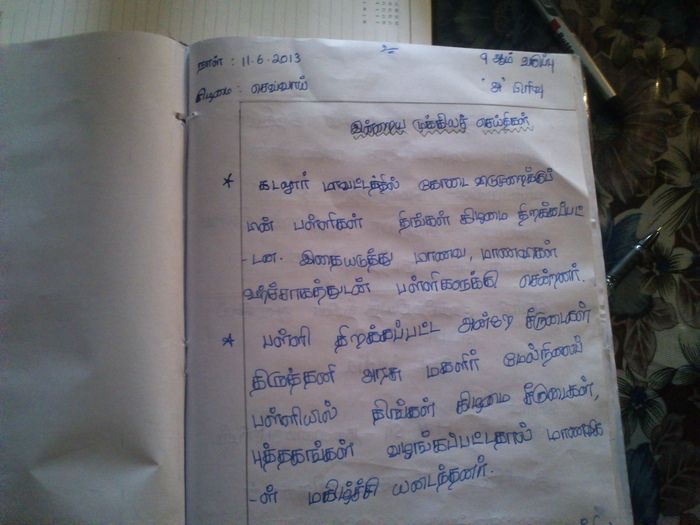 2
நாள் : 11.6.2013 9 ஆம் வகுப்பு
கிழமை : செவ்வாய் 'அ' பிரிவு
இன்றைய முக்கியச் செய்திகள்
* கடலூர் மாவட்டத்தில் கோடை விடுமுறைக்குப்
பின் பள்ளிகள் திங்கள் கிழமை திறக்கப்பட்
-டன. இதையடுத்து மாணவ, மாணவிகள்
உற்சாகத்துடன் பள்ளிகளுக்கு சென்றனர்.
* பள்ளி திறக்கப்பட்ட அன்றே சீருடைகள்
திருத்தணி அரசு மகளிர் மேல்நிலைப்
பள்ளியில் திங்கள் கிழமை சீருடைகள்,
புத்தகங்கள் வழங்கப்பட்டதால் மாணவிக
-ள் மகிழ்ச்சி யடைந்தனர்.